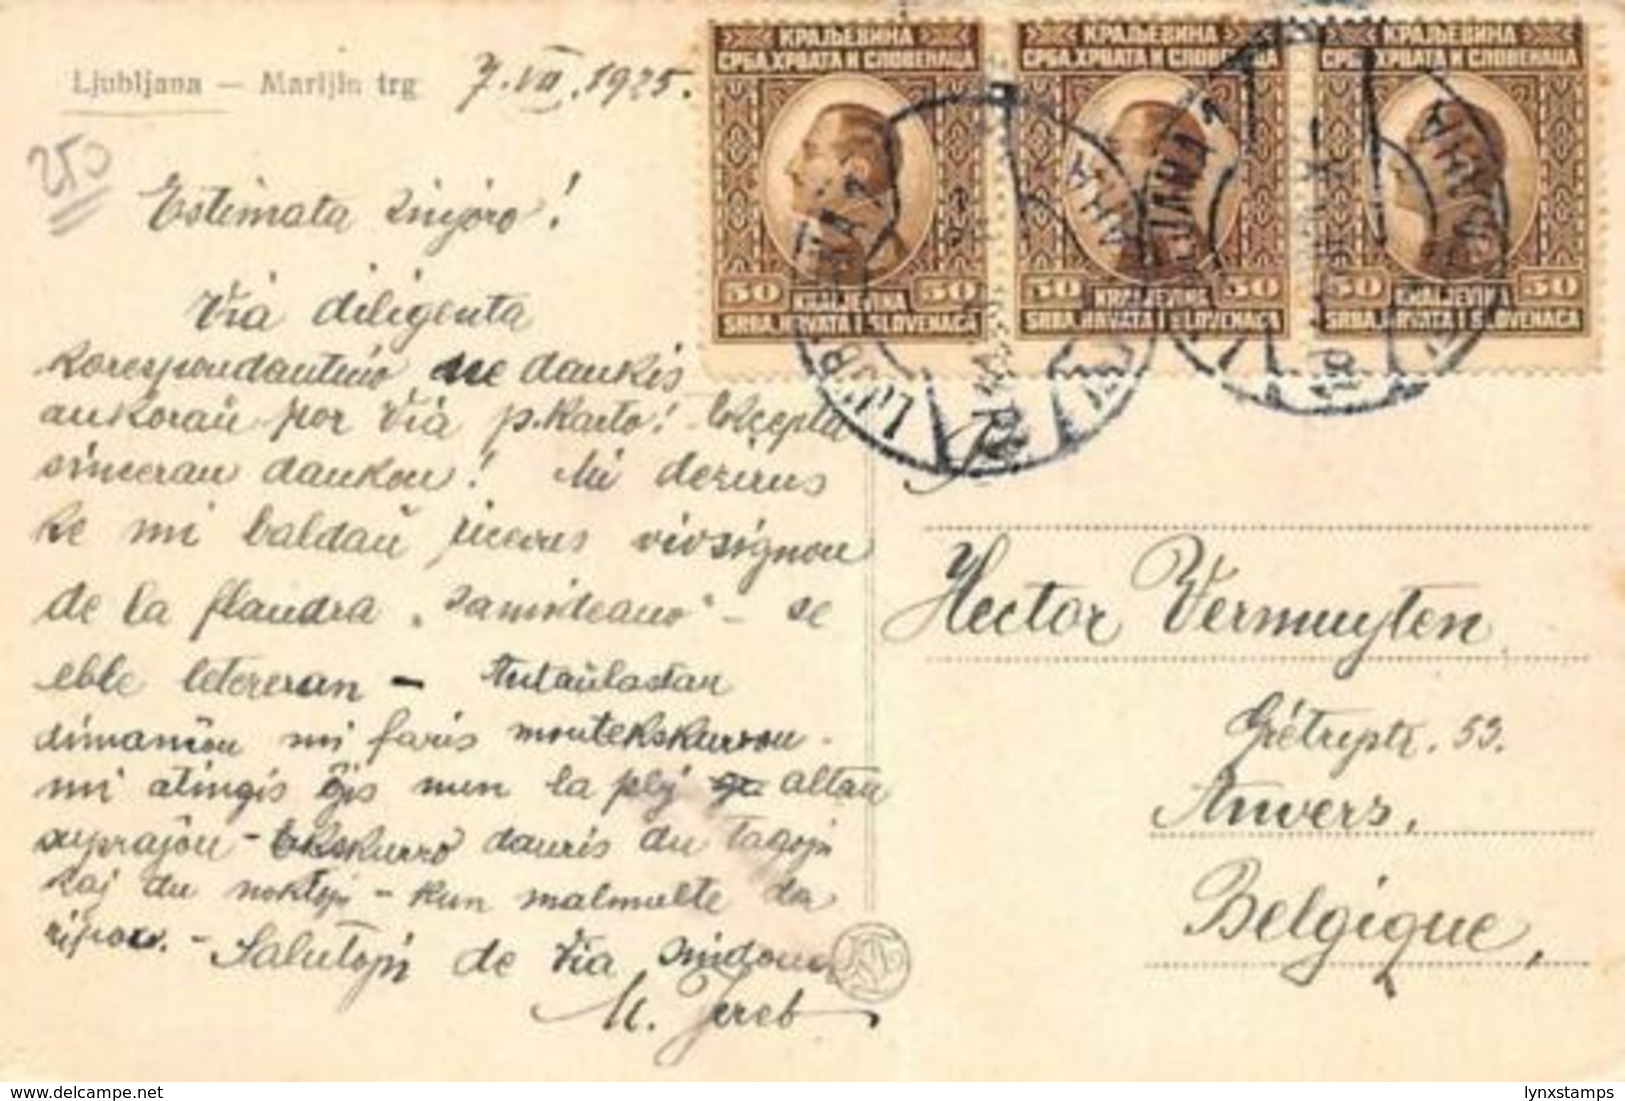 Ljubljana — Marijin trg 7.VII.1925.
250
Estimata sinjoro!
Via diligenta
korespondantino ne dankis
ankoraŭ por Via p.karto! Akceptu
sinceran dankon! Mi dezirus
ke mi baldaŭ ricevus vivsignon
de la flandra „samideano" — se
eble letereran — Antaŭlastan
dimanĉon mi faris montekskurson —
mi atingis ĝis nun la plej altan
suprajon — Ekskurso dauris du tagojn
kaj du noktojn — kun malmulte da
ripozo. — Salutojn de Via samideano
M. Jereb
КРАЉЕВИНА
СРБА, ХРВАТА И СЛОВЕНАЦА
50 KRALJEVINA 50
SRBA, HRVATA I SLOVENACA
КРАЉЕВИНА
СРБА, ХРВАТА И СЛОВЕНАЦА
50 KRALJEVINA 50
SRBA, HRVATA I SLOVENACA
КРАЉЕВИНА
СРБА, ХРВАТА И СЛОВЕНАЦА
50 KRALJEVINA 50
SRBA, HRVATA I SLOVENACA
Hector Vermuyten
53.
Anvers,
Belgique,
delcampe.net
lynxstamps